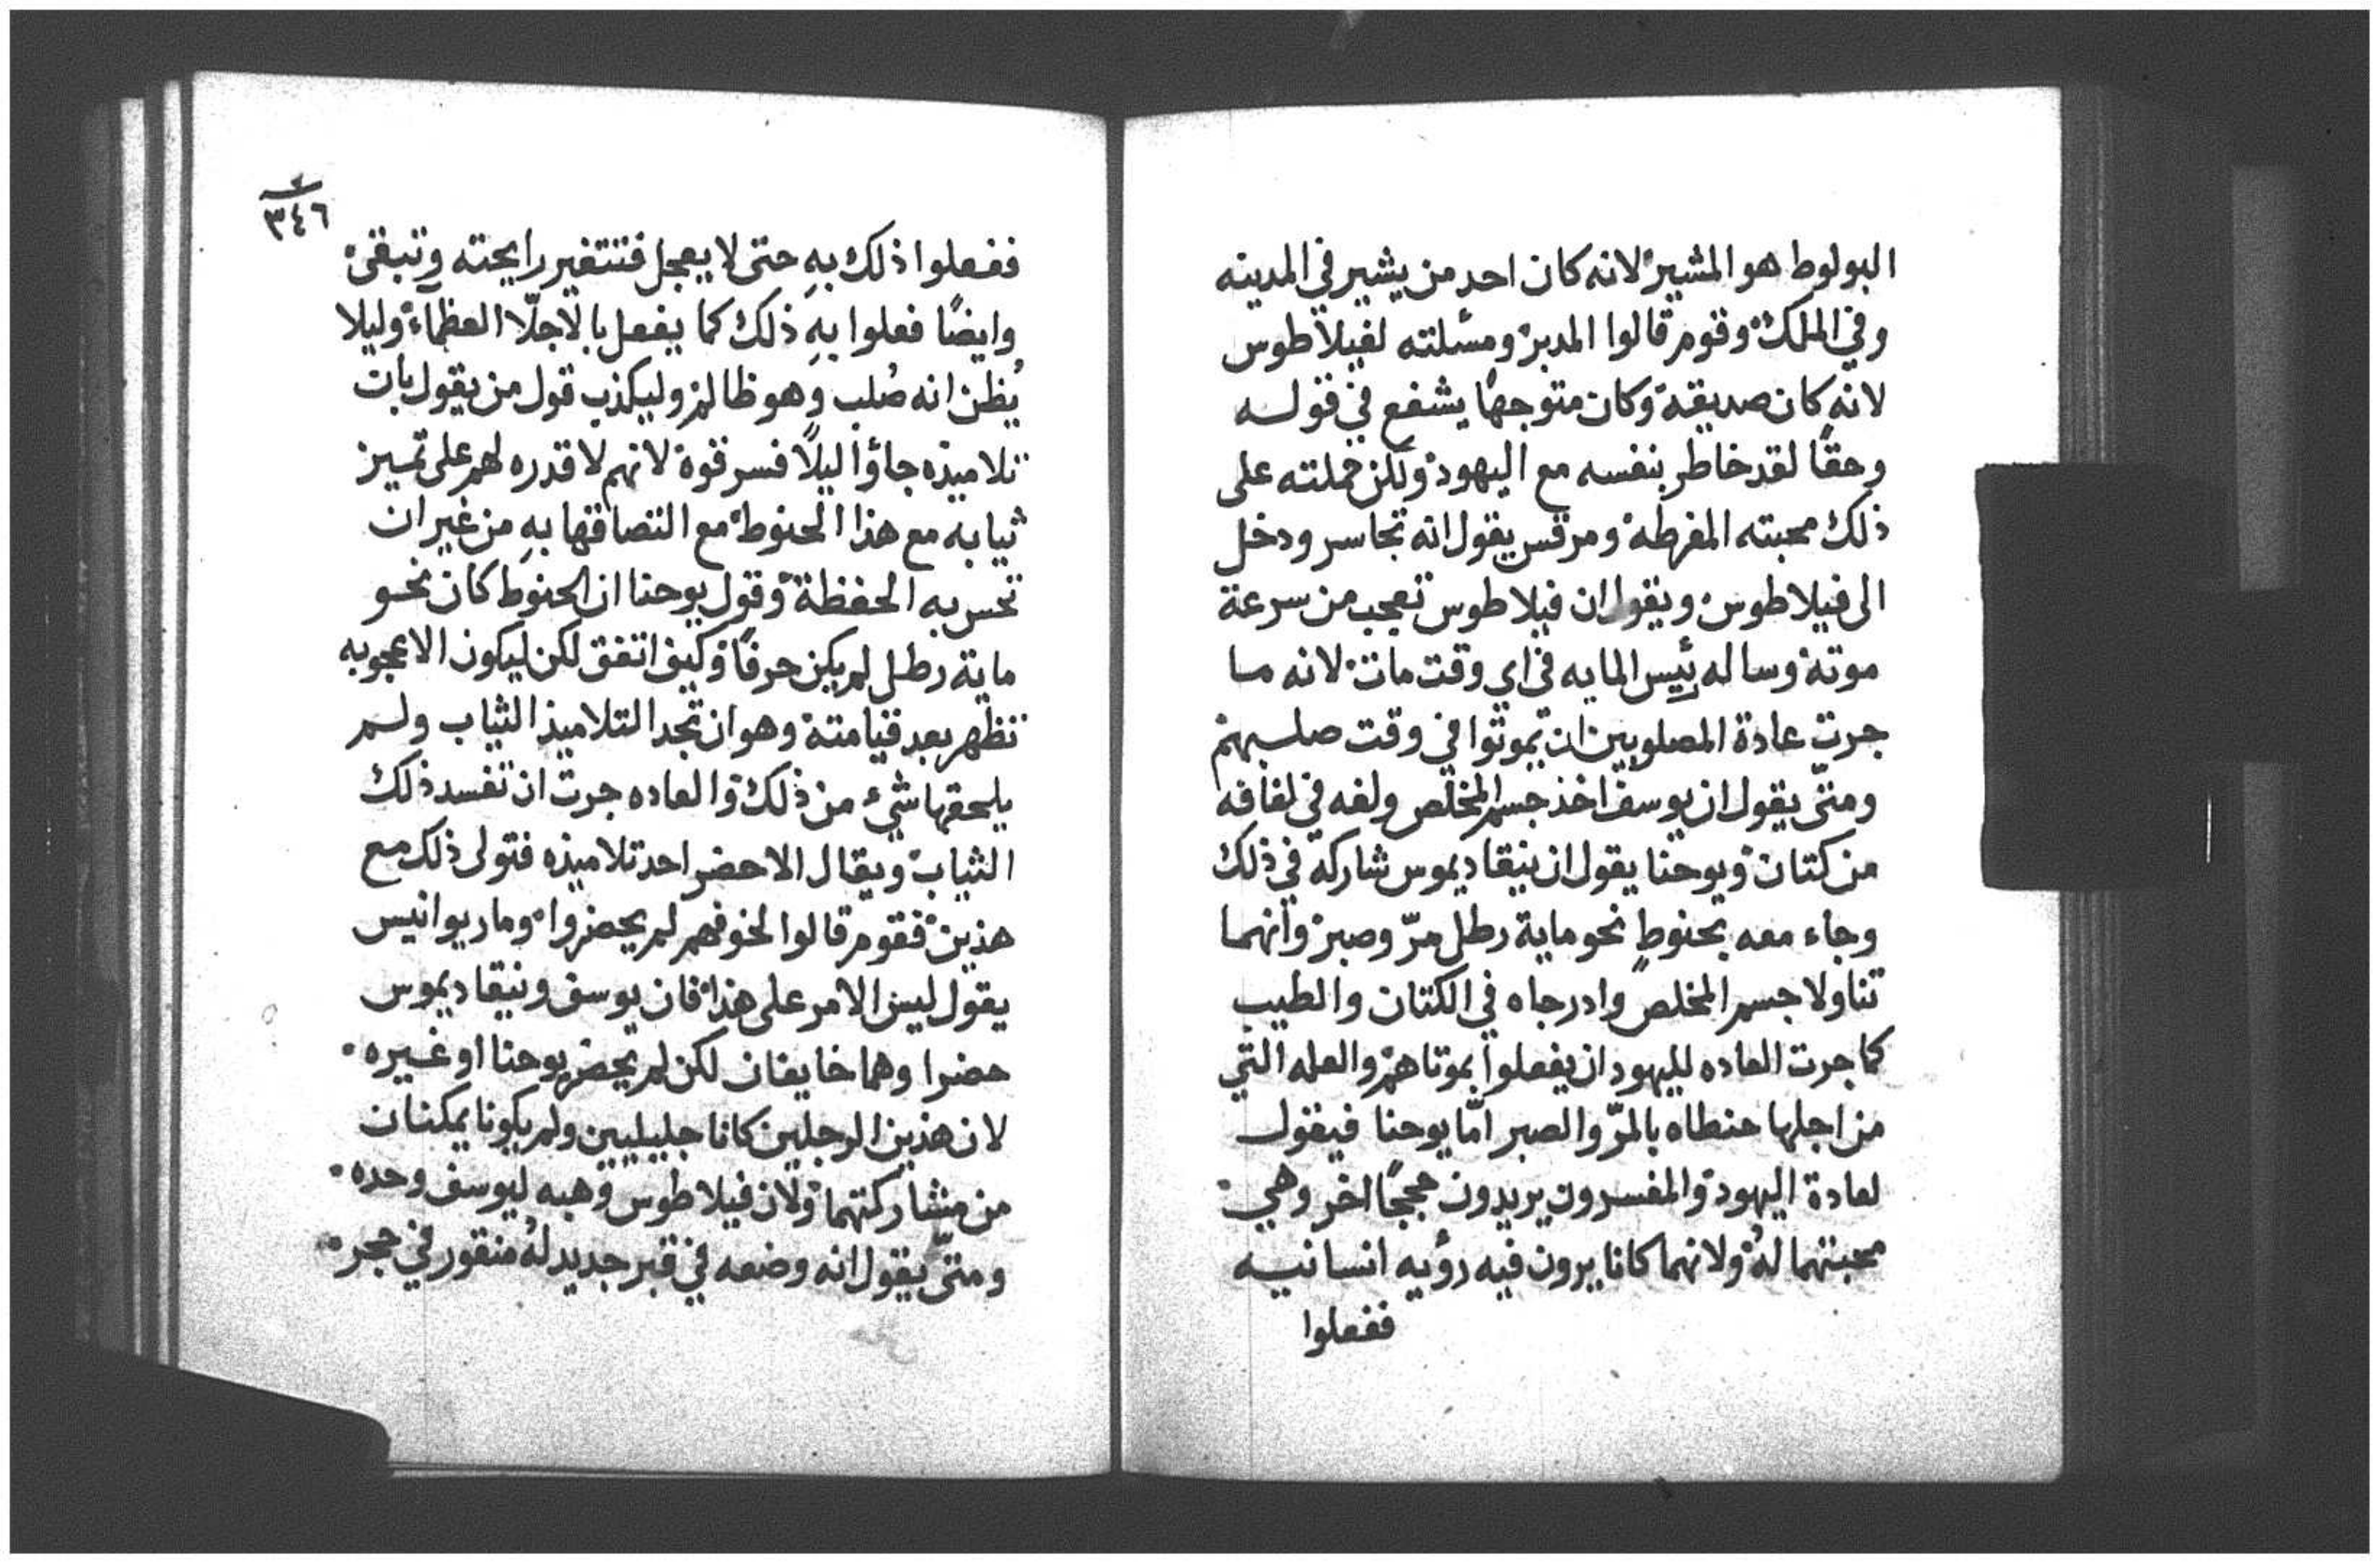 البولوط هو المشير لانه كان احد من يشير في المدينه
وفي الملك وقوم قالوا المدبر ومسئلته لفيلاطوس
لانه كان صديقه وكان متوجهًا يشفع في قوله
وحقًا لقد خاطر بنفسه مع اليهود ولكن حملته على
ذلك محبته المفرطه ومرقس يقول انه تجاسر ودخل
الى فيلاطوس ويقول ان فيلاطوس تعجب من سرعة
موته وساله رئيس المايه في اي وقت مات لانه ما
جرت عادة المصلوبين ان يموتوا في وقت صلبهم
ومتّى يقول ان يوسف اخذ جسم المخلص ولفه في لفافه
من كتان ويوحنا يقول ان نيقاديموس شاركه في ذلك
وجاء معه بحنوطٍ نحو ماية رطل مرّ وصبر وانهما
تناولا جسم المخلص وادرجاه في الكتان والطيب
كما جرت العاده لليهود ان يفعلوا بموتاهم والعله التي
من اجلها حنطاه بالمرّ والصبر امّا يوحنا فيقول
لعادة اليهود والمفسرون يريدون حججًا اخر وهي
محبتهما لهُ ولانهما كانا يرون فيه رؤيه انسانيه
ففعلوا
٣٤٦
ففعلوا ذلك بهِ حتى لا يعجل فتتغير رايحته وتبقى
وايضًا فعلوا بهِ ذلك كما يفعل بالاجلّا العظماء وليلا
يُظن انه صُلب وهو ظالم وليكذب قول من يقول بان
تلاميذه جاؤا ليلًا فسرقوه لانهم لا قدره لهم على تمييز
ثيابه مع هذا الحنوط مع التصاقها بهِ من غير ان
تحس به الحفظة وقول يوحنا ان الحنوط كان نحو
ماية رطل لم يكن حرفًا وكيف اتفق لكن ليكون الاعجوبه
تظهر بعد قيامته وهو ان تجد التلاميذ الثياب ولم
يلحقها شيء من ذلك والعاده جرت ان تفسد ذلك
الثياب ويقال الا حضر احد تلاميذه فتولى ذلك مع
هذين فقوم قالوا لخوفهم لم يحضروا وماريوانيس
يقول ليس الامر على هذا فان يوسف ونيقاديموس
حضرا وهما خايفان لكن لم يحضر يوحنا او غيره
لان هذين الرجلين كانا جليليين ولم يكونا يمكنان
من مشاركتهما ولان فيلاطوس وهبه ليوسف وحده
ومتّى يقول انه وضعه في قبر جديد لهُ منقور في حجر